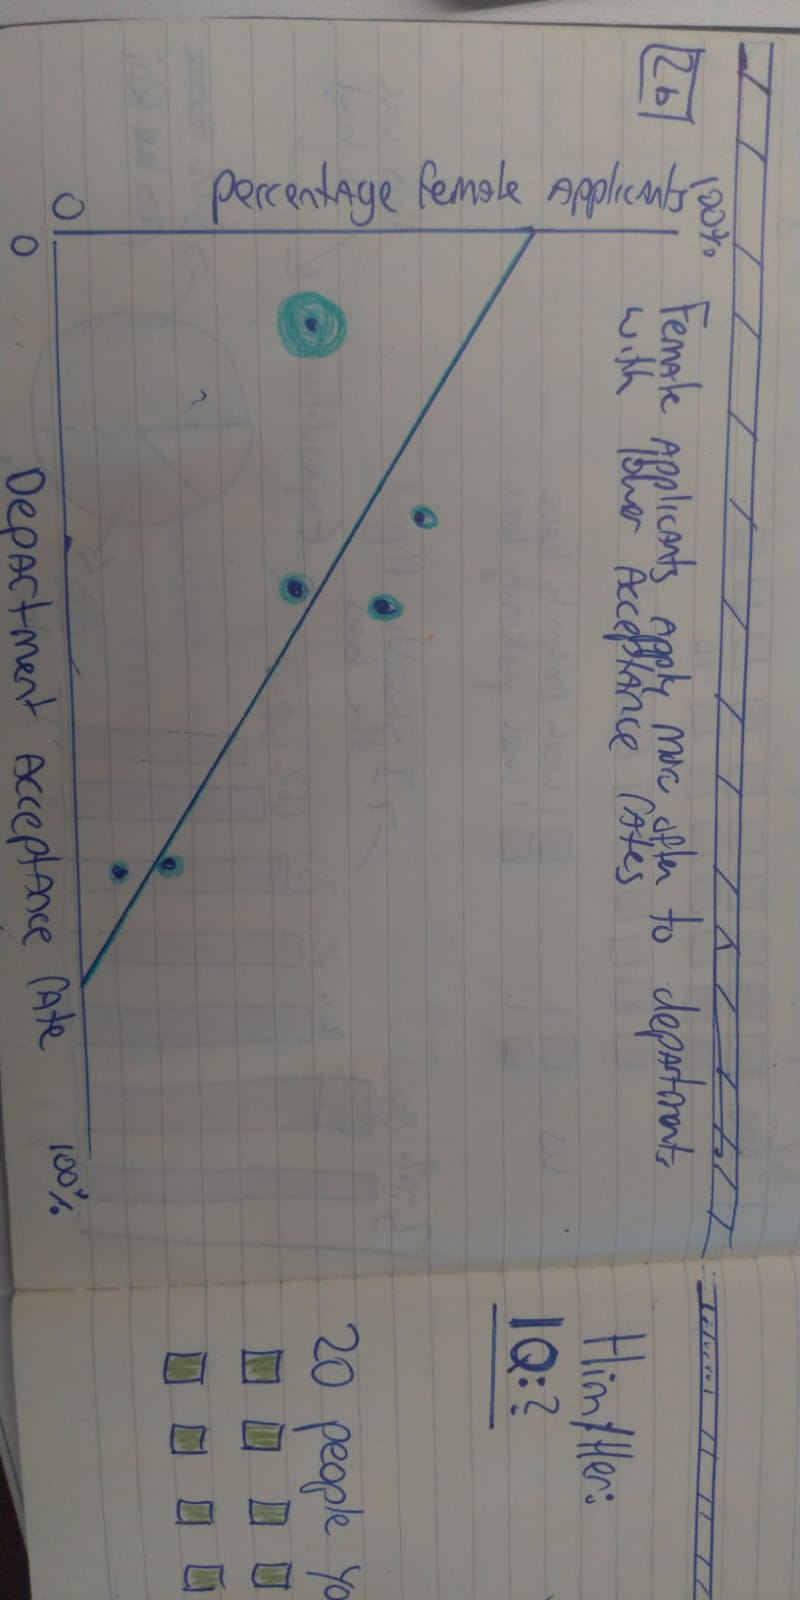 2b
100%
Female Applicants Apply more often to departments
with lower Acceptance rates
Percentage female Applicants
0
0
Department Acceptance rate
100%
Him/Her:
IQ:?
20 people yo